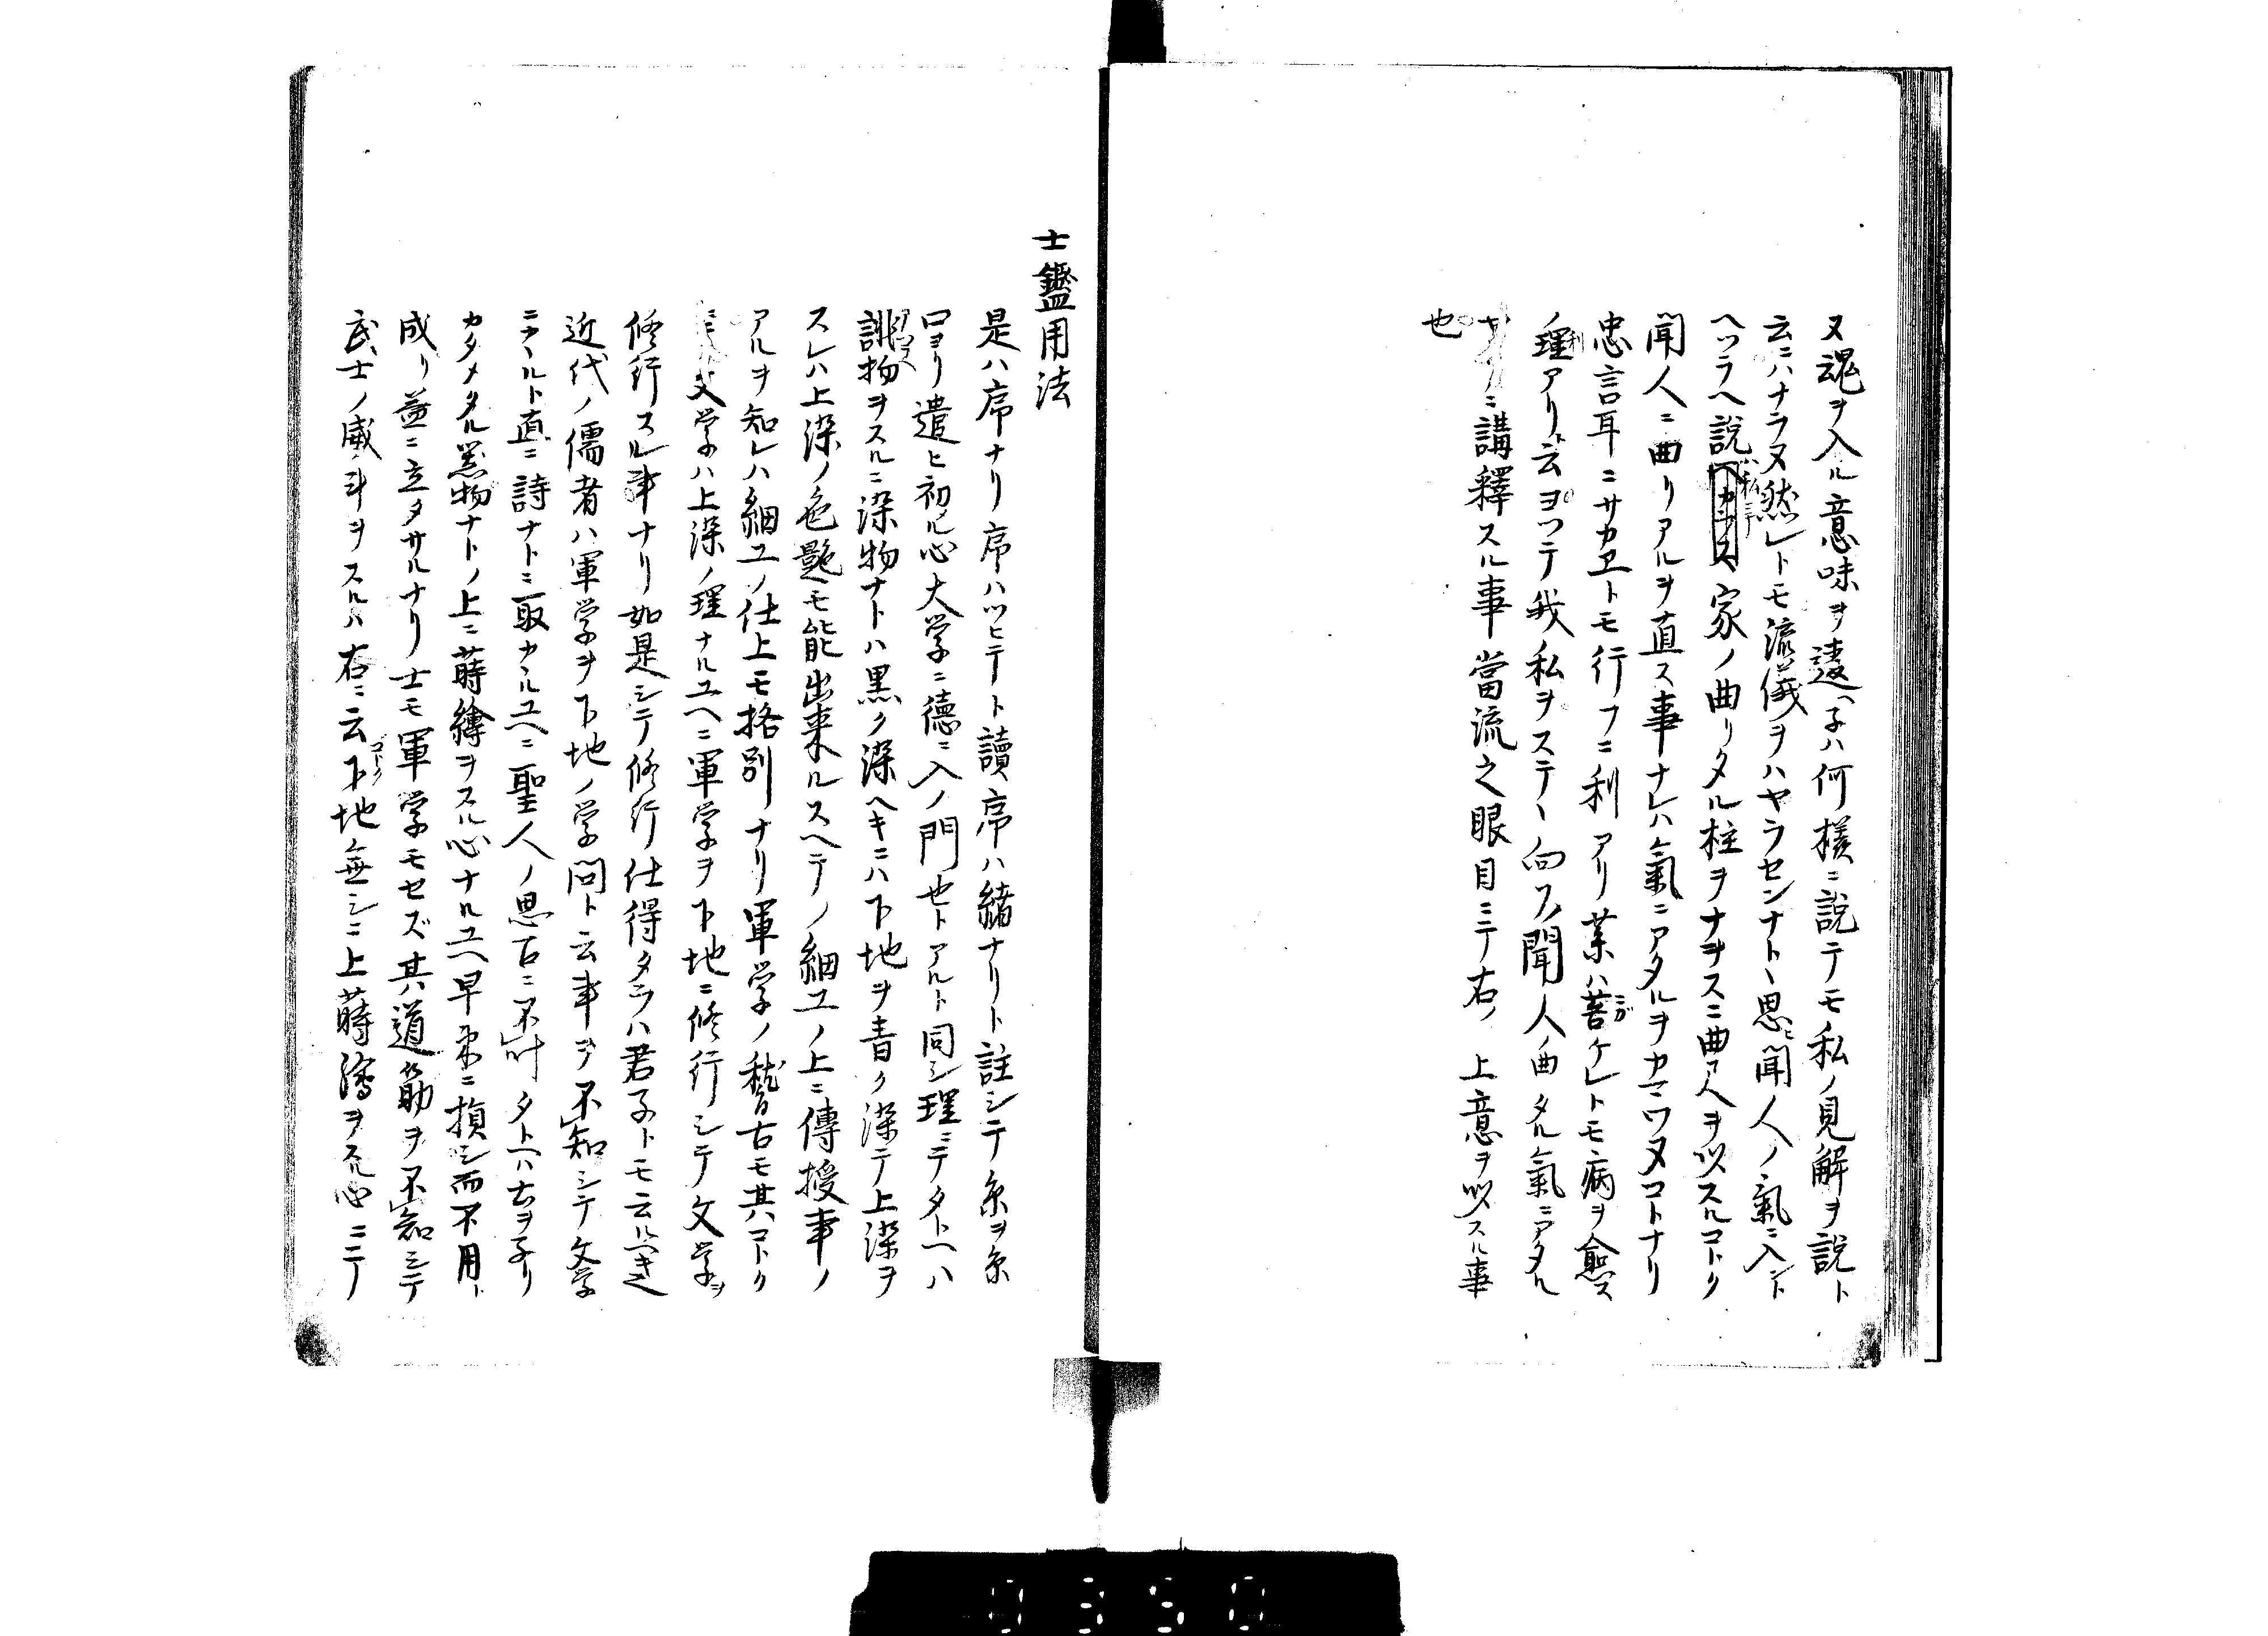 又魂ヲ入ル意味ヲ違ヘ子ハ何様ニ説テモ私ノ見解ヲ説ト
云ニハナラヌ然レトモ流儀ヲハヤラセンナトヽ思ヒ聞人ノ氣ニ入ント
ヘツラヘ説ヘカラス家ノ曲リタル柱ヲナヲスニ曲ヲ人ヲ以スルコトク
聞人ニ曲リアルヲ直ス事ナレハ氣ニアタルヲカマワヌコトナリ
忠言耳ニサカヱトモ行フニ利アリ薬ハ苦ケレトモ病ヲ愈ス
ノ理アリト云ヨツテ我私ヲステヽ向フノ聞人ノ曲タル氣ニアタル
ニ講釋スル事當流之眼目ニテ右ノ上意ヲ以スル事
也
士鑑用法
是ハ序ナリ序ハツヒテト讀序ハ緒ナリト註シテ糸ヲ糸
口ヨリ遣ヒ初ル心大学ニ徳ニ入ノ門也トアルト同シ理ニテタトヘハ
誂物ヲスルニ染物ナトハ黒ク染ヘキニハ下地ヲ青ク染テ上染ヲ
スレハ上染ノ色艶モ能出来ルスヘテノ細工ノ上ニ傳授事ノ
アルヲ知レハ細工ノ仕上モ格別ナリ軍学ノ稽古モ其コトク
文学ハ上染ノ理ナルユヘニ軍学ヲ下地ニ修行シテ文学ヲ
修行スル事ナリ如是シテ修行仕得タラハ君子トモ云ルヘキ也
近代ノ儒者ハ軍学ヲ下地ノ学問ト云事ヲ不知シテ文学
ニアルト直ニ詩ナトニ取カヽルユヘニ聖人ノ思召ニ不叶タトヘハ古ヲ子リ
カタメタル器物ナトノ上ニ蒔繪ヲスル心ナルユヘ早速ニ損シ而不用ト
成リ益ニ立タサルナリ士モ軍学モセズ其道筋ヲ不知シテ
武士ノ威斗ヲスルハ右ニ云コトク下地無シニ上蒔繪ヲスル心ニテ